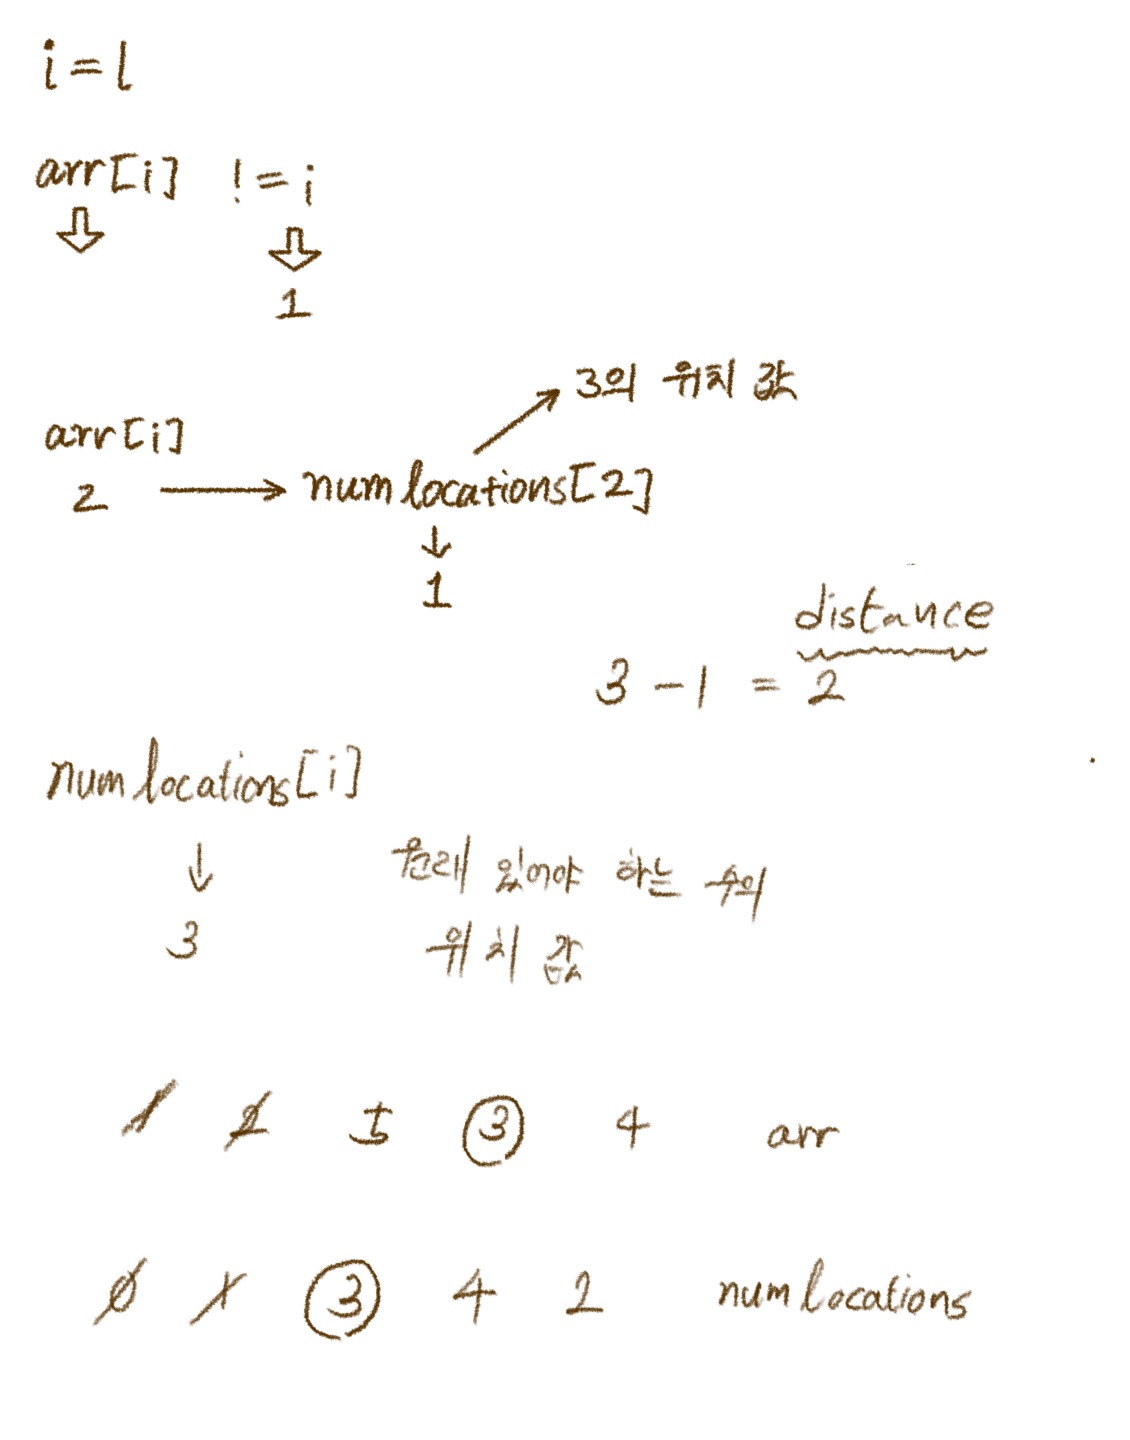 i = 1
arr[i] != i
1
3의 위치 값
arr[i]
2 → numlocations[2]
↓
1
distance
3 - 1 = 2
numlocations[i]
↓
3
원래 있어야 하는 수의
위치 값
1 2 5 3 4 arr
0 1 3 4 2 numlocations